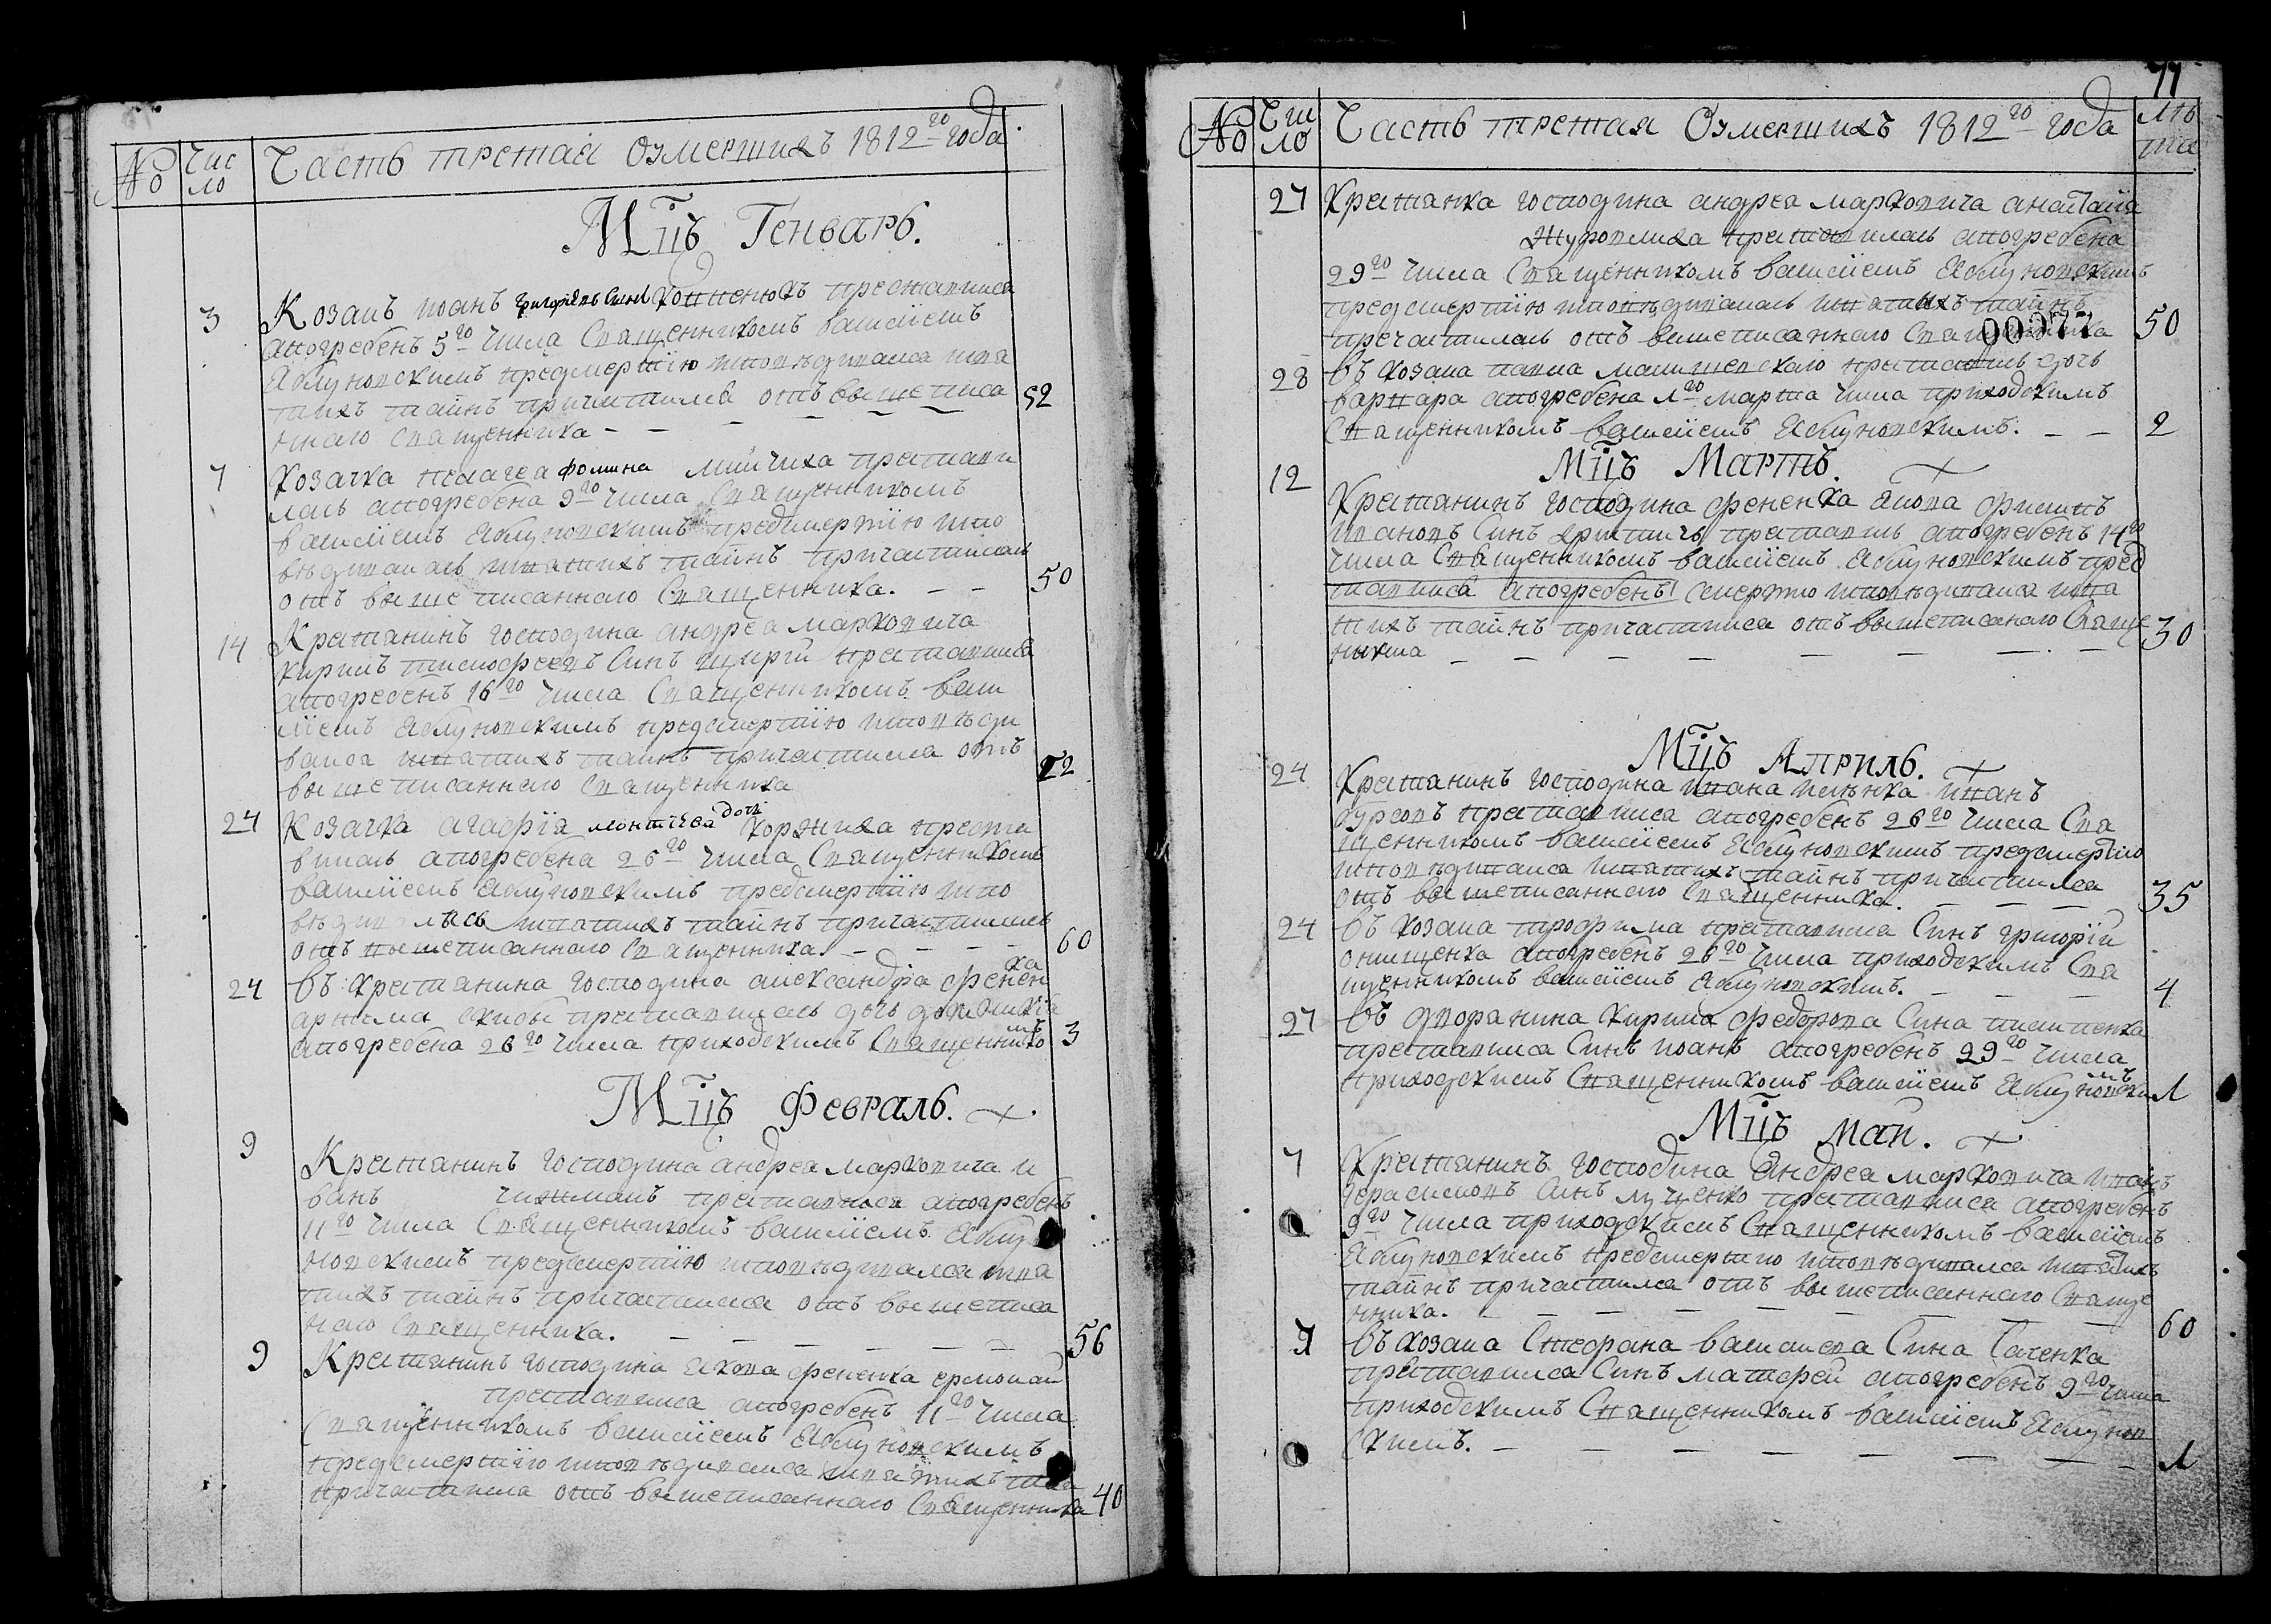 № Чис
ло Часть третая Оумершихъ 1812го года
Мцъ Генварь.
3 Козакъ иоанъ григориевъ Синъ преставился
апогребенъ 5го числа Священникомъ василіемъ
Яблуновскимъ предсмертію исповѣдивался исвя
тихъ таинъ причастился отъ вышеписа
ннаго священника - 52
7 Козачка пелагея фомина престави
лась апогребена 9го числа Священникомъ
василіемъ Яблуновскимъ предсмертію испо
вѣдивалась исвятихъ таинъ причастилась
отъ выше писаннаго Священника. - - 50
14 Крестянинъ господина андрея марковича
кирилъ тимофеевъ Синъ преставился
апогребенъ 16го числа Священникомъ васи
ліемъ Яблуновскимъ предсмертію исповѣди
вался исвятихъ таинъ причастился отъ
вышеписаннаго священника
24 Козачка агафія леонтіева дочь Коржиха преста
вилась апогребена 26го числа Священникомъ
василіемъ Яблуновскимъ предсмертію испо
вѣдивалась исвятихъ таинъ причастилась
отъ вышеписаннаго священника. - 60
24 Въ крестянина господина александра фененка
скибы преставилась дочь
апогребена 26го числа приходскимъ Священникомъ 3
Мцъ Февраль.
9 Крестянинъ господина андрея марковича и
ванъ чижманъ преставился апогребенъ
11го числа Священникомъ василіемъ Яблу
новскимъ предсмертію исповѣдивался исвя
тихъ таинъ причастился отъ вышеписа
наго Священника. - 56
9 Крестянинъ господина Якова фененка ермолай
преставился апогребенъ 11го числа
Священникомъ василіемъ Яблуновскимъ
предсмертію исповѣдивался исвятихъ таи
причастился отъ вышеписаннаго Священника 40
77
№ Чи
ло Часть третая Оумершихъ 1812го года Лѣ
та
27 Крестянка господина андрея марковича анастасія
Журовлиха преставилась апогребена
29го числа Священникомъ василіемъ Яблуновскимъ
предсмертію исповѣдивалась исвятихъ таинъ
причастилась отъ вышеписаннаго Священника 50
00977
28 Въ козака павла преставилась дочь
варвара апогребена 1го марта числа приходскимъ
Священникомъ василіемъ Яблуновскимъ. - - 2
Мцъ Мартъ.
12 Крестянинъ господина фененка Якова филипъ
ивановъ Синъ преставилъ апогребенъ 14го
числа Священникомъ василіемъ Яблуновскимъ пред
ставился апогребенъ смертію исповѣдивался исвя
тихъ таинъ причастился отъ вышеписанаго Свяще
нника - - - - - - - - 30
Мцъ Априль.
24 Крестянинъ господина ивана иванъ
преставился апогребенъ 26го числа Свя
щенникомъ василіемъ Яблуновскимъ предсмертію
исповѣдивался исвятихъ таинъ причастился
отъ вышеписаннаго Священника. - - - 35
24 Въ козака трофима преставился Синъ григорій
онищенка апогребенъ 26го числа приходскимъ Свя
щенникомъ василіемъ Яблуновскимъ. - - - 4
27 Въ дворянина кирила федорова Сина пилипенка
преставился Синъ иоанъ апогребенъ 29го числа
приходскимъ Священникомъ василіемъ Яблуновскимъ 1
Мцъ Май.
7 Крестянинъ господина Андрея марковича иванъ
герасимовъ Синъ луценко преставился апогребенъ
9го числа приходскимъ Священникомъ василіемъ
Яблуновскимъ предсмертию исповѣдивался исвятихъ
таинъ причастился отъ вышеписаннаго Свяще
нника. - - - - - - - 60
7 Въ козака Стефана василиева Сина Саченка
преставился Синъ матфей апогребенъ 9го числа
приходскимъ Священникомъ василіемъ Яблунов
скимъ. - - - - - - - 1